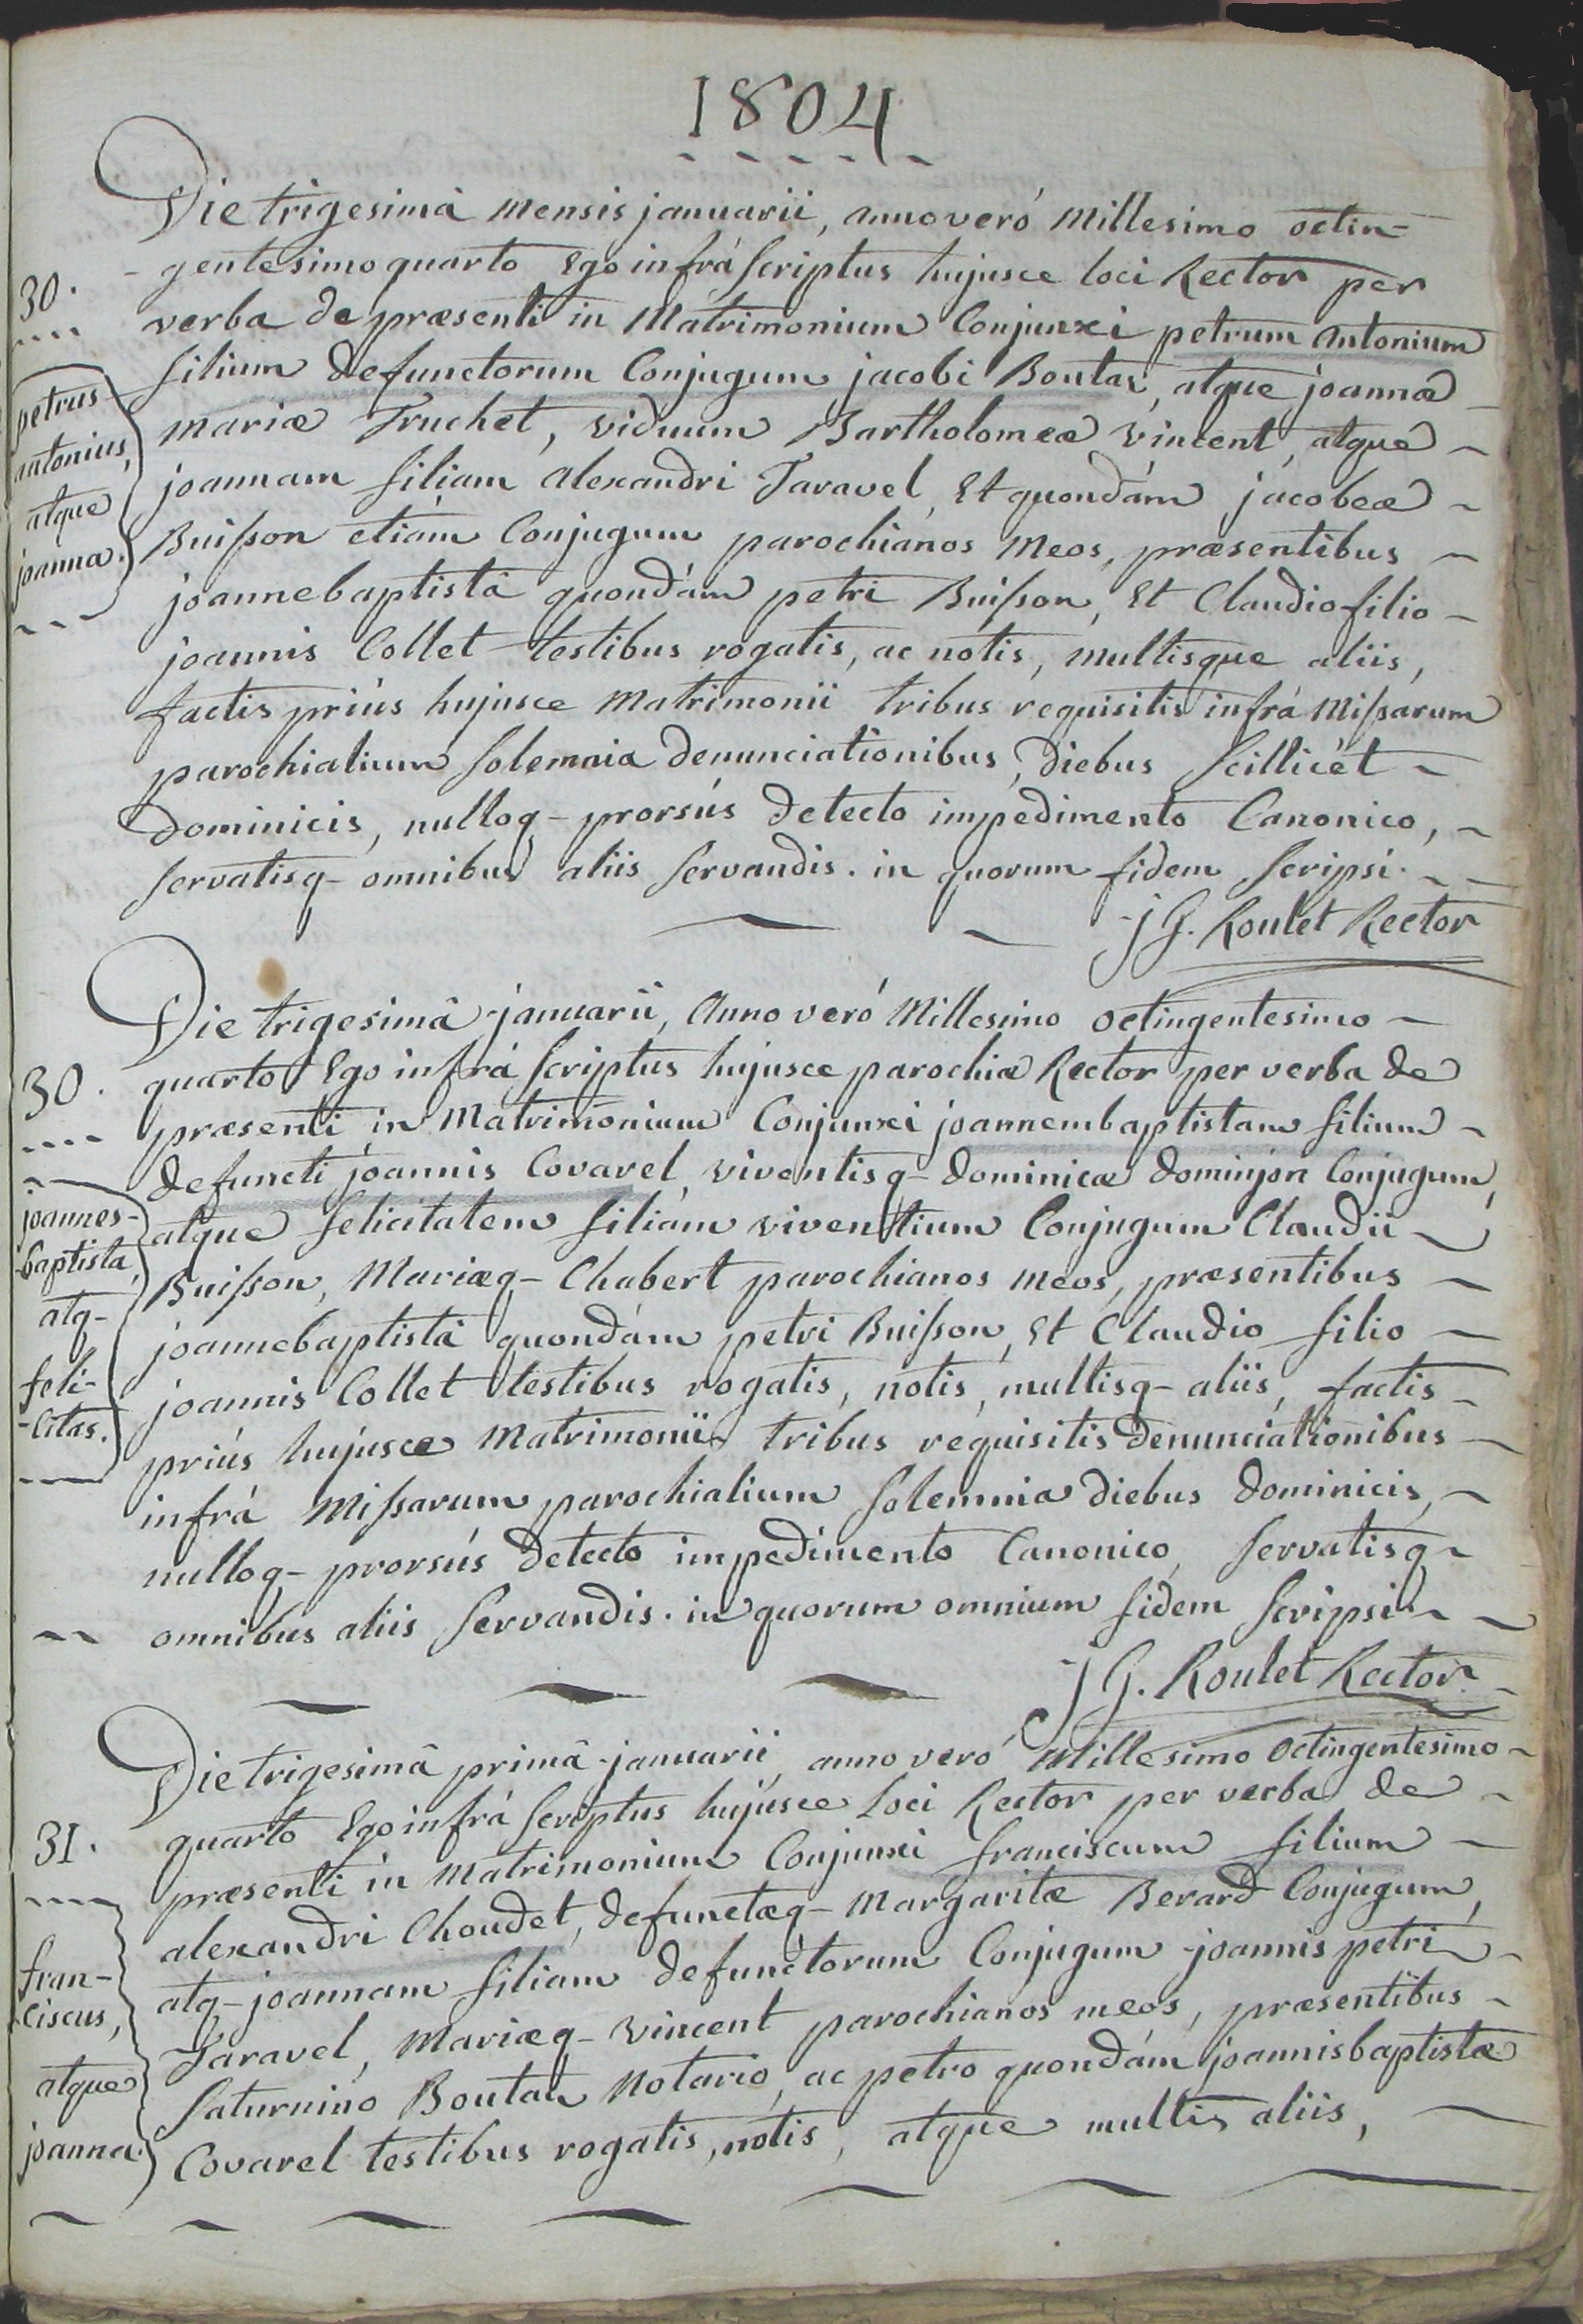 1804
Die trigesimâ mensis januarii, anno veró millesimo octin-
30.
- gentesimo quarto Ego infrá scriptus hujusce loci Rector per
verba de præsenti in Matrimonium Conjunxi petrum antonium
filium defunctorum Conjugum jacobi Boutaz, atque joannæ
petrus
antonius,
atque
joanna.
mariæ Truchet, viduum Bartholomeæ vincent, atque
joannam filiam alexandri Taravel, Et quondám jacobeæ
Buisson etiám Conjugum parochianos meos, præsentibus
joannebaptistâ quondám petri Buisson, Et Claudio filio
joannis Collet testibus rogatis, ac notis, multisque aliis,
factis priús hujusce Matrimonii tribus requisitis infrá Missarum
parochialium solemnia denunciationibus, diebus scillicét
dominicis, nulloq- prorsús detecto impedimento Canonico,
servatisq- omnibus aliis servandis. in quorum fidem scripsi.
j G. Roulet Rector
Die trigesimâ januarii, Anno veró Millesimo octingentesimo
30.
quarto Ego infrá scriptus hujusce parochiæ Rector per verba de
præsenti in Matrimonium Conjunxi joannembaptistam filium
defuncti joannis Covarel, viventisq- dominicæ dominjon Conjugum,
joannes-
baptista,
atq-
feli-
-citas.
atque felicitatem filiam viventium Conjugum Claudii
Buisson, Mariæq- Chabert parochianos meos, præsentibus
joannebaptistâ quondám petri Buisson, Et Claudio filio
joannis Collet testibus rogatis, notis, multisq- aliis, factis
priús hujusce Matrimonii tribus requisitis denunciationibus
infrá Missarum parochialium solemnia diebus dominicis,
nulloq- prorsús detecto impedimento Canonico, servatisq-
omnibus aliis servandis. in quorum omnium fidem scripsi.
j G. Roulet Rector
Die trigesimâ primâ januarii, anno veró Millesimo octingentesimo
31.
quarto Ego infrá scriptus hujusce loci Rector per verba de
præsenti in Matrimonium Conjunxi franciscum filium
alexandri Choudet, defunctæq- Margaritæ Berard Conjugum,
fran-
ciscus,
atque
joanna.
atq- joannam filiam defunctorum Conjugum joannis petri
Taravel, Mariæq- vincent parochianos meos, præsentibus
saturnino Boutaz Notario, ac petro quondám joannisbaptistæ
Covarel testibus rogatis, notis, atque multis aliis,